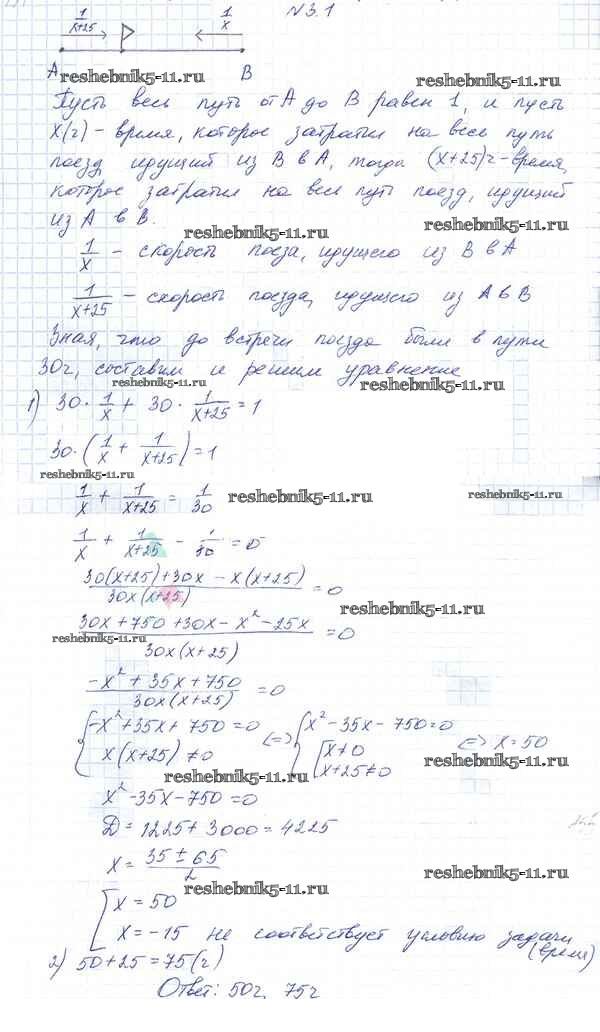 N3.1
1/(x+25) 1/x
А В
reshebnik5-11.ru
Пусть весь путь от А до В равен 1, и пусть
x(ч) - время, которое затратил на весь путь
поезд идущий из В в А, тогда (x+25)ч - время,
которое затратил на весь путь поезд, идущий
из А в В.
reshebnik5-11.ru reshebnik5-11.ru
1/x - скорость поезда, идущего из В в А
1/(x+25) - скорость поезда, идущего из А в В
Зная, что до встречи поезда были в пути
30ч, составим и решим уравнение
reshebnik5-11.ru
1) 30 · 1/x + 30 · 1/(x+25) = 1
30 · (1/x + 1/(x+25)) = 1
reshebnik5-11.ru
1/x + 1/(x+25) = 1/30
reshebnik5-11.ru reshebnik5-11.ru
1/x + 1/(x+25) - 1/30 = 0
(30(x+25) + 30x - x(x+25))/(30x(x+25)) = 0
reshebnik5-11.ru
(30x + 750 + 30x - x² - 25x)/(30x(x+25)) = 0
reshebnik5-11.ru
(-x² + 35x + 750)/(30x(x+25)) = 0
{-x² + 35x + 750 = 0 <=> {x² - 35x - 750 = 0 <=> x = 50
x(x+25) ≠ 0 [x ≠ 0
x+25 ≠ 0
reshebnik5-11.ru reshebnik5-11.ru
x² - 35x - 750 = 0
D = 1225 + 3000 = 4225
x = (35 ± 65)/2
reshebnik5-11.ru reshebnik5-11.ru
[x = 50
x = -15 не соответствует условию задачи
(время)
2) 50 + 25 = 75 (ч)
Ответ: 50ч, 75ч